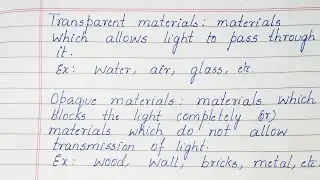 Transparent materials: materials
which allows light to pass through
it.
Ex: water, air, glass, etc.
Opaque materials: materials which
blocks the light completely (or)
materials which do not allow
transmission of light.
Ex: wood, wall, bricks, metal, etc